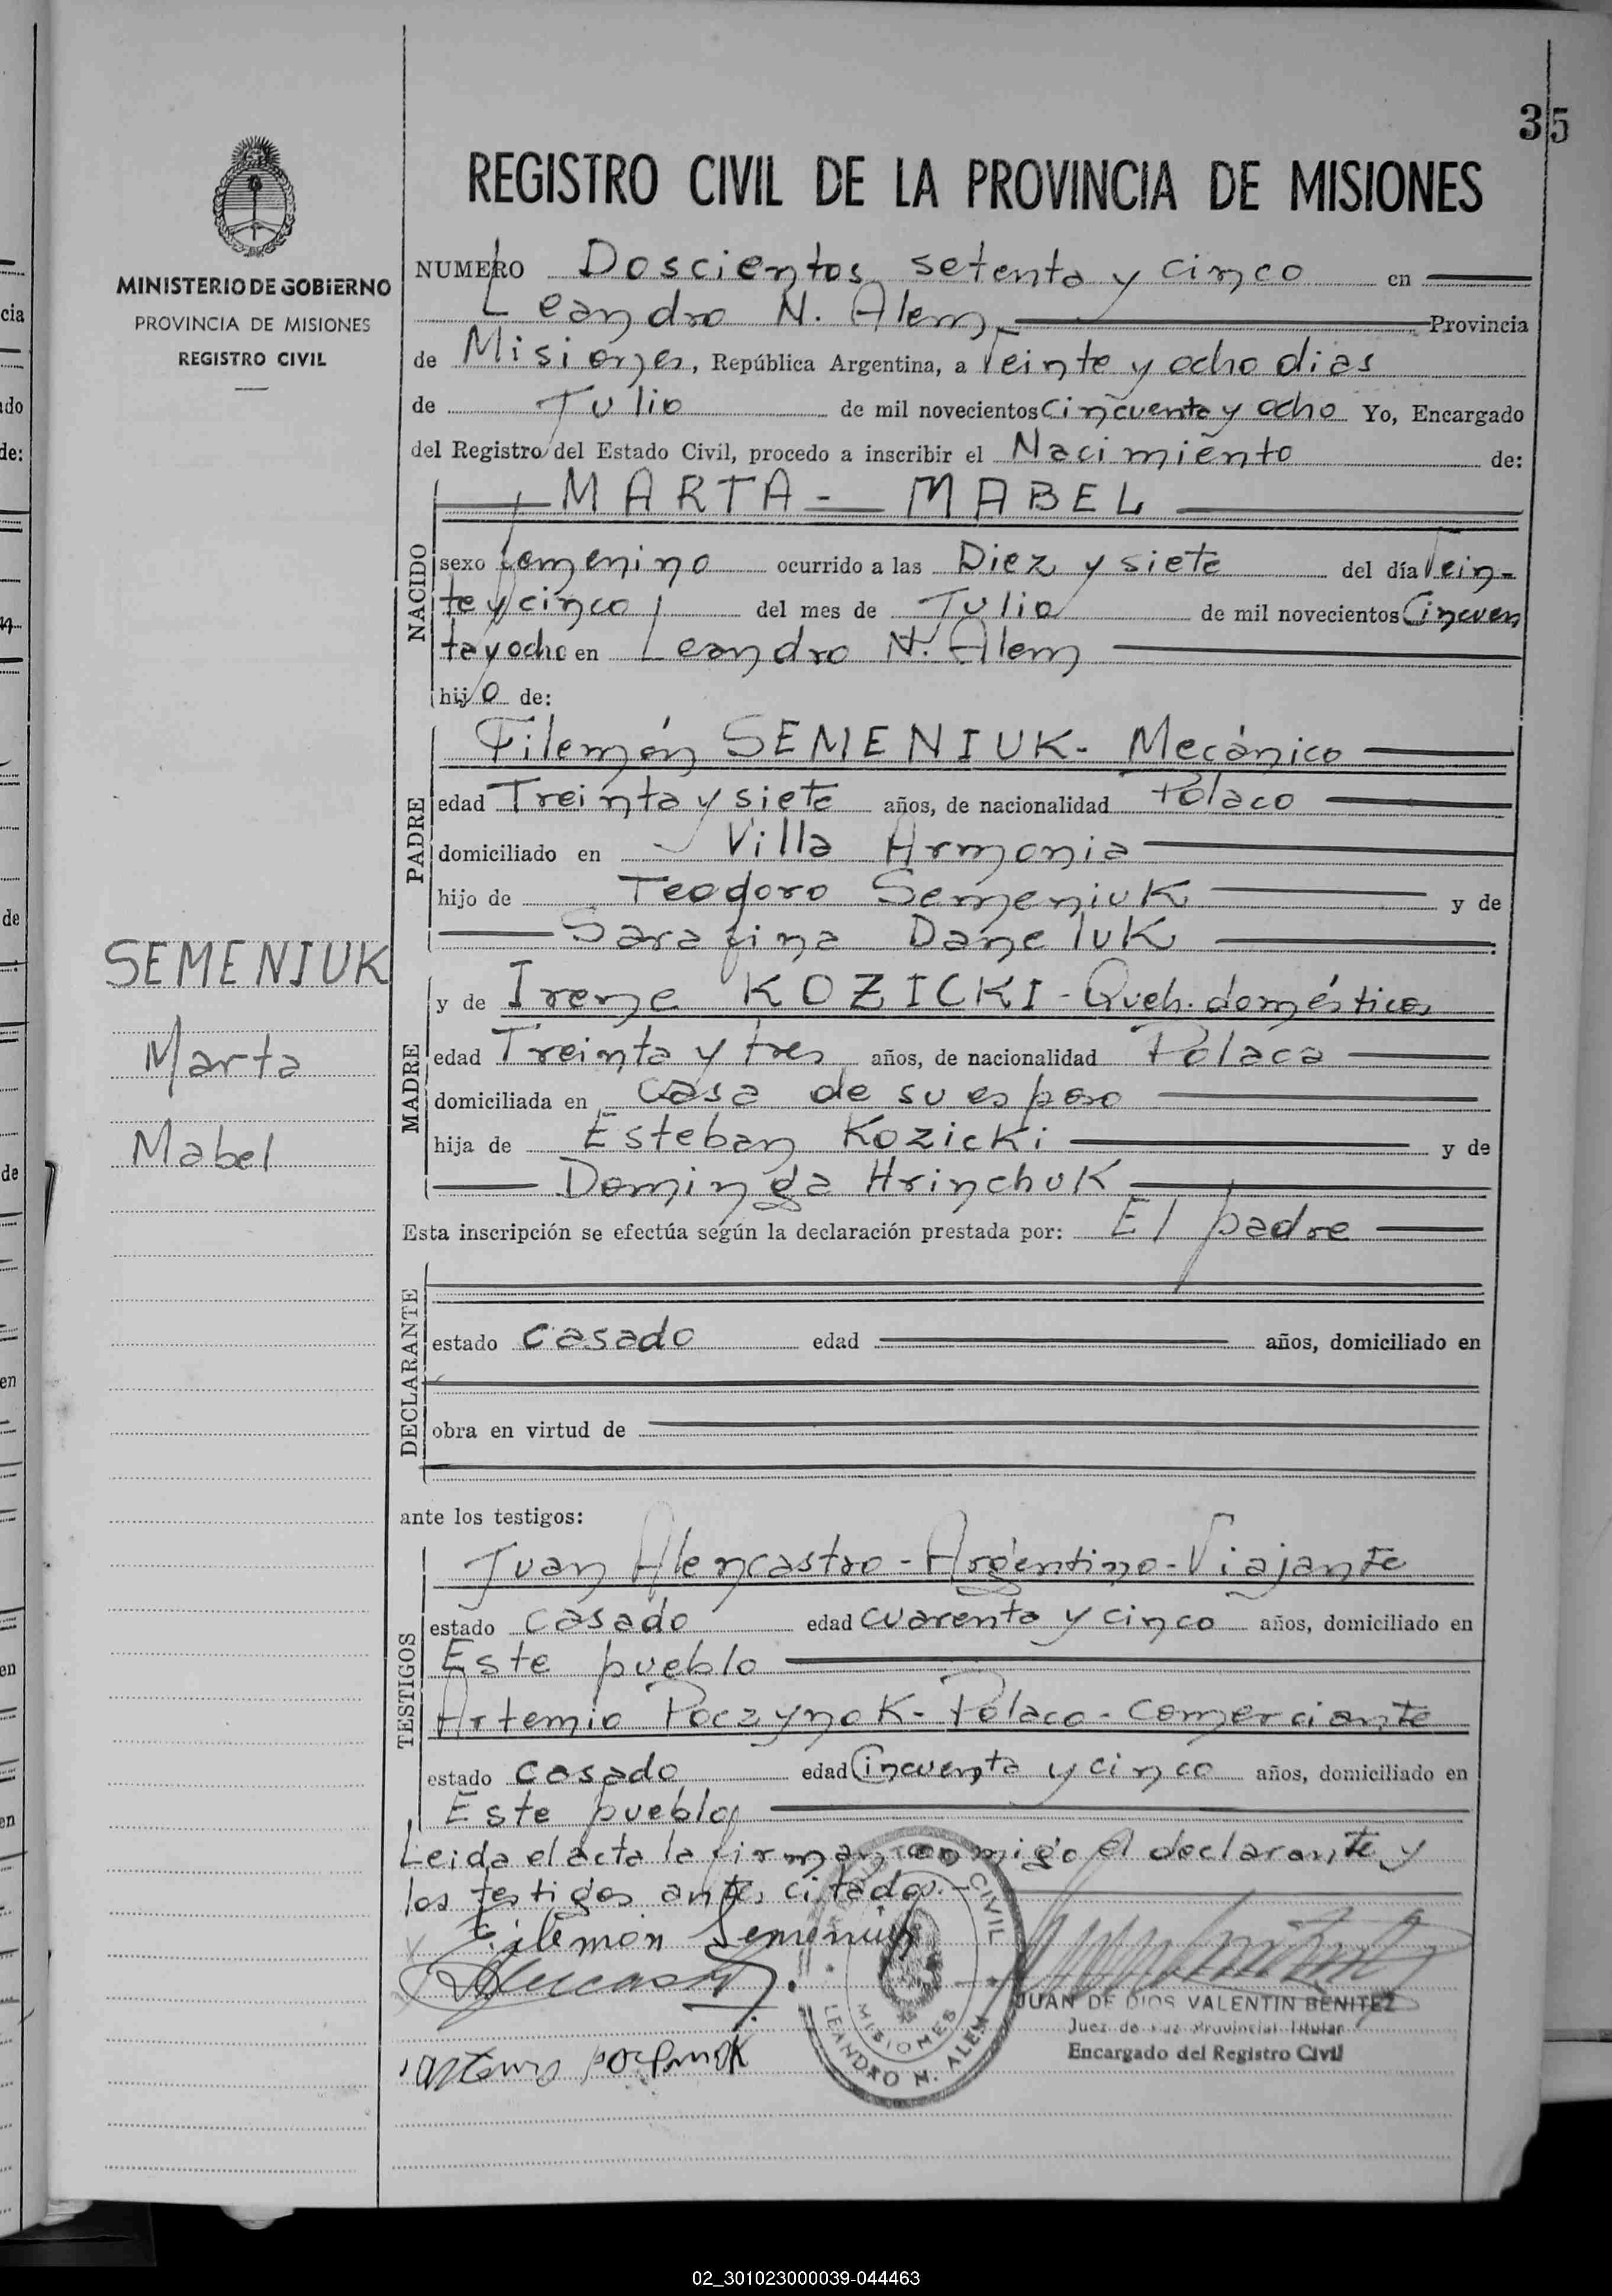 35
REGISTRO CIVIL DE LA PROVINCIA DE MISIONES
MINISTERIO DE GOBIERNO
PROVINCIA DE MISIONES
REGISTRO CIVIL
NUMERO Doscientos setenta y cinco en
Leandro N. Alem, Provincia
de Misiones, República Argentina, a Veinte y ocho dias
de Julio de mil novecientos Cincuenta y ocho Yo, Encargado
del Registro del Estado Civil, procedo a inscribir el Nacimiento de:
MARTA - MABEL
NACIDO
sexo femenino ocurrido a las Diez y siete del día Vein-
te y cinco del mes de Julio de mil novecientos Cincuen
ta y ocho en Leandro N. Alem
hijo de:
PADRE
Filemón SEMENIUK - Mecánico
edad Treinta y siete años, de nacionalidad Polaco
domiciliado en Villa Armonia
hijo de Teodoro Semeniuk y de
Sarafina Daneluk
SEMENIUK
Marta
Mabel
MADRE
y de Irene KOZICKI - Queh. domésticos
edad Treinta y tres años, de nacionalidad Polaca
domiciliada en casa de su esposo
hija de Esteban Kozicki y de
Dominga Hrinchuk
Esta inscripción se efectúa según la declaración prestada por: El padre
DECLARANTE
estado casado edad años, domiciliado en
obra en virtud de
ante los testigos:
TESTIGOS
Juan Alencastro - Argentino - Viajante
estado casado edad cuarenta y cinco años, domiciliado en
Este pueblo
Artemio Poczynok - Polaco - Comerciante
estado casado edad Cincuenta y cinco años, domiciliado en
Este pueblo
Leida el acta la firman conmigo el declarante y
los testigos antes citados.-
Filemón Semeniuk
CIVIL
MISIONES
LEANDRO N. ALEM
JUAN DE DIOS VALENTIN BENITEZ
Juez de Paz Provincial Titular
Encargado del Registro Civil
02_301023000039-044463